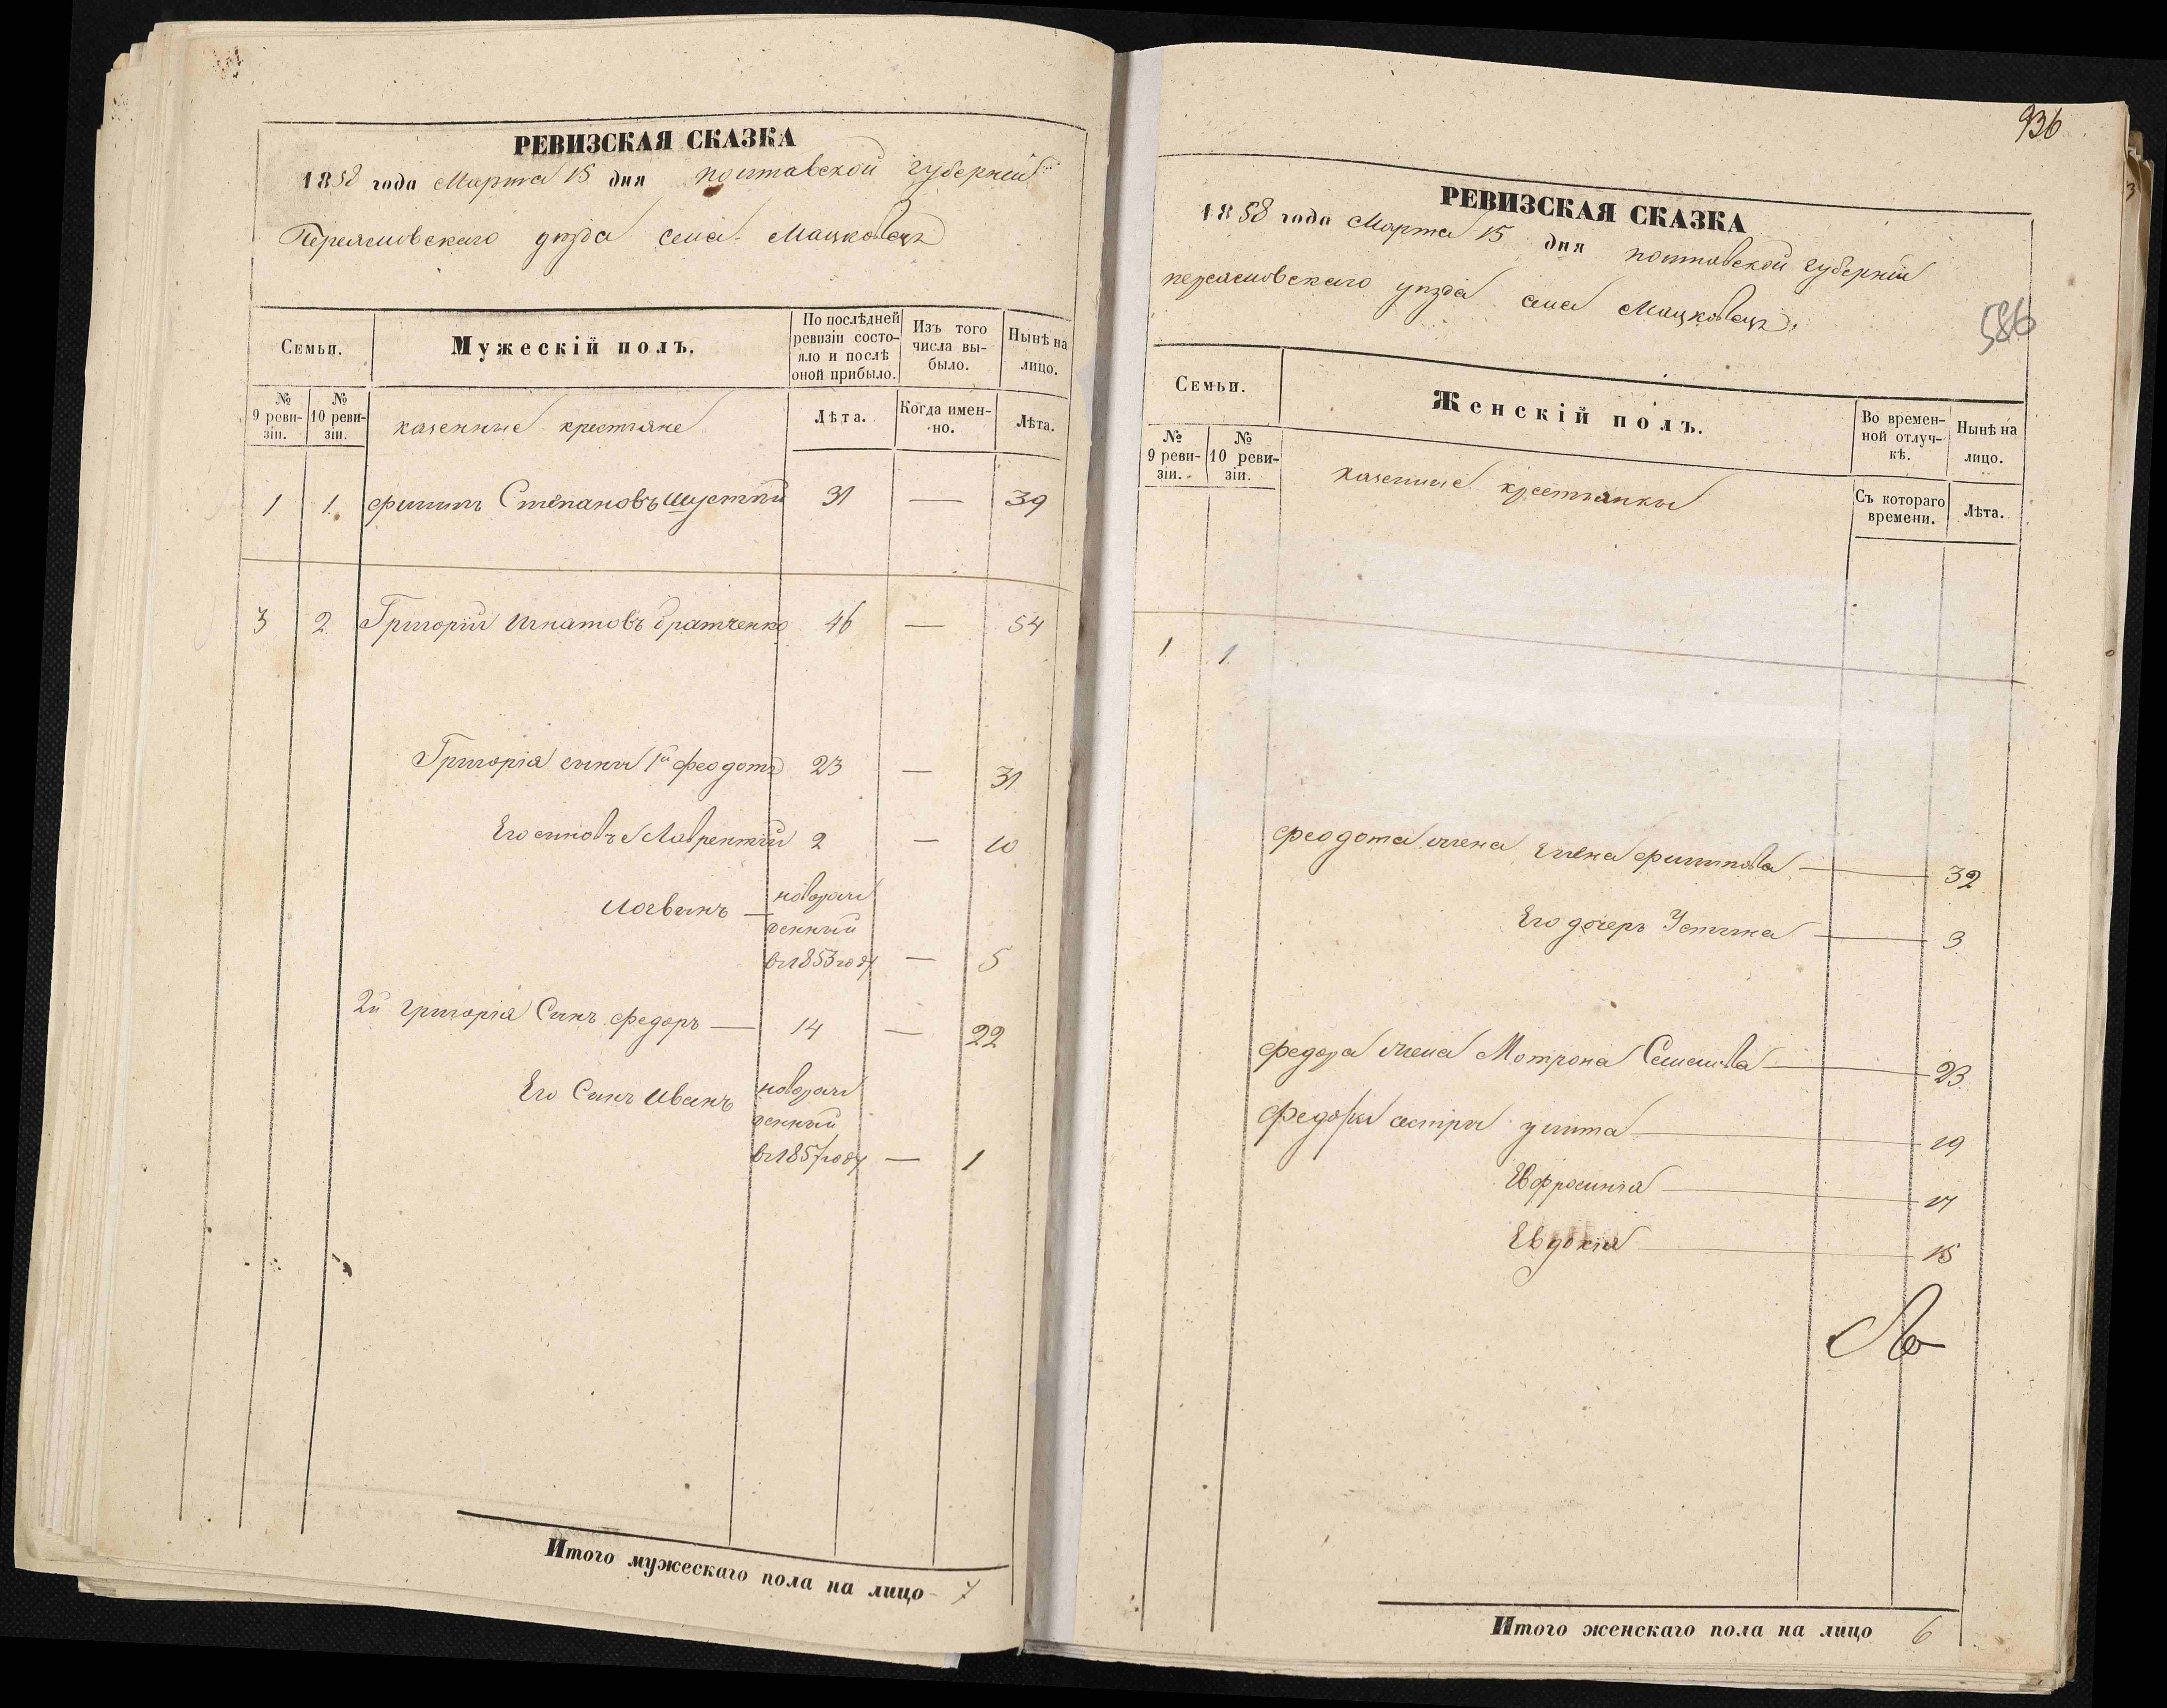 РЕВИЗСКАЯ СКАЗКА
1858 года Марта 15 дня полтавской губернии
Переяславскаго уѣзда села Мацковець
Семьи.
Мужескій полъ.
По послѣдней ревизіи состояло и послѣ оной прибыло.
Изъ того числа выбыло.
Нынѣ на лицо.
№ 9 ревизіи.
№ 10 ревизіи.
казенные крестьяне
Лѣта.
Когда именно.
Лѣта.
1 1. Филипъ Степановъ Шустий 31 — 39
3 2 Григорій Игнатовъ братченко 46 — 54
Григорія сыны 1й Феодотъ 23 — 31
Его синовъ Лаврентій 2 — 10
Логвинъ — новорож
денный
въ 1853 году — 5
2й Григорія Сынъ Федоръ — 14 — 22
Его Сынъ Иванъ новорож
денный
въ 1857 году — 1
Итого мужескаго пола на лицо 7
936
РЕВИЗСКАЯ СКАЗКА
1858 года Марта 15 дня полтавской губерніи
переяславскаго уѣзда села Мацковець.
586
Семьи.
Женскій полъ.
Во временной отлучкѣ.
Нынѣ на лицо.
№ 9 ревизіи.
№ 10 ревизіи.
казенные крестьянки
Съ котораго времени.
Лѣта.
1 1
Феодота жена Елена Филипова — 32
Его дочерь Устина — 3
Федора жена Мотрона Семенова — 23
Федоры сестры улита — 19
Евфросинія — 17
Евдокія — 15
Итого женскаго пола на лицо 6